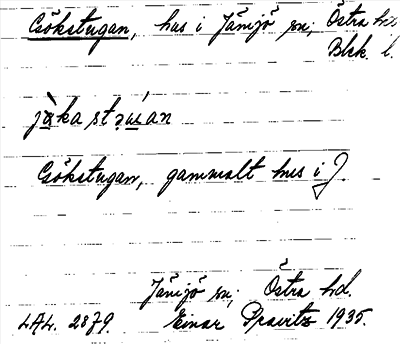 Gökstugan, hus i Jämjö sn; Östra hd.
Blek. l.
jàka stų́an
Gökstugan, gammalt hus i J.
Jämjö sn; Östra hd.
LAL. 2879. Einar Pravitz 1935.